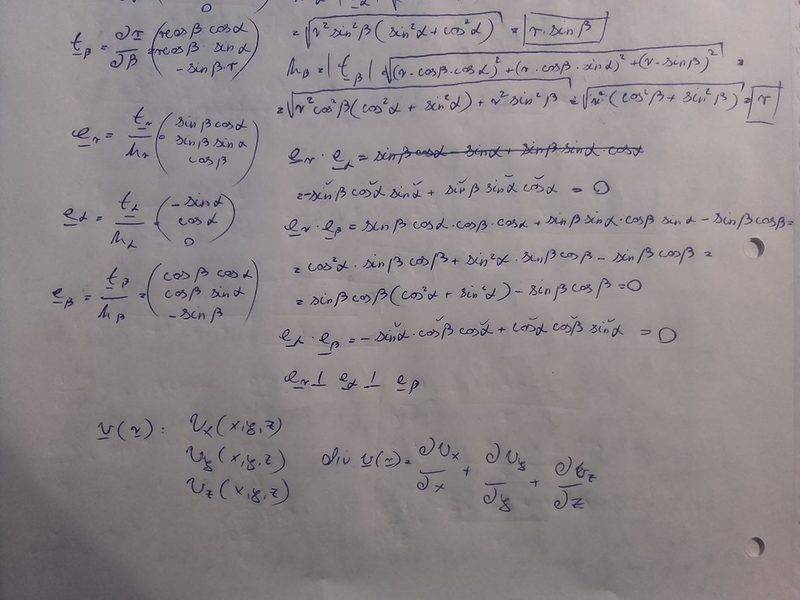 0
t_β = ∂r/∂β = (r cosβ cosα
r cosβ sinα
- sinβ·r)
= √(r² sin²β (sin²α + cos²α)) = r·sinβ
h_β = |t_β| = √((r·cosβ·cosα)² + (r·cosβ·sinα)² + (r·sinβ)²) =
= √(r² cos²β (cos²α + sin²α) + r² sin²β) = √(r² (cos²β + sin²β)) = r
e_r = t_r/h_r = (sinβ cosα
sinβ sinα
cosβ)
e_r · e_α = sinβ cosα - sinα + sinβ sinα · cosα
= -sinβ cosα sinα + sinβ sinα cosα = 0
e_α = t_α/h_α = (-sinα
cosα
0)
e_r · e_β = sinβ cosα · cosβ · cosα + sinβ sinα · cosβ sinα - sinβ cosβ =
= cos²α · sinβ cosβ + sin²α · sinβ cosβ - sinβ cosβ =
= sinβ cosβ (cos²α + sin²α) - sinβ cosβ = 0
e_β = t_β/h_β = (cosβ cosα
cosβ sinα
- sinβ)
e_α · e_β = - sinα · cosβ cosα + cosα cosβ sinα = 0
e_r ⊥ e_α ⊥ e_β
v(r): v_x (x,y,z)
v_y (x,y,z)
v_z (x,y,z)
div v(r) = ∂v_x/∂x + ∂v_y/∂y + ∂v_z/∂z